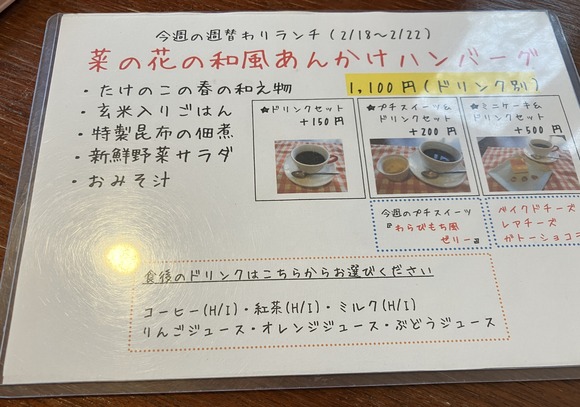 今週の週替わりランチ(2/18〜2/22)
菜の花の和風あんかけハンバーグ
・たけのこの春の和え物
1,100円(ドリンク別)
・玄米入りごはん
・特製昆布の佃煮
・新鮮野菜サラダ
・おみそ汁
★ドリンクセット
+150円
★プチスイーツ&
ドリンクセット
+200円
★ミニケーキ&
ドリンクセット
+500円
今週のプチスイーツ
『わらびもち風
ゼリー』
ベイクドチーズ
レアチーズ
ガトーショコラ
食後のドリンクはこちらからお選びください
コーヒー(H/I)・紅茶(H/I)・ミルク(H/I)
りんごジュース・オレンジジュース・ぶどうジュース